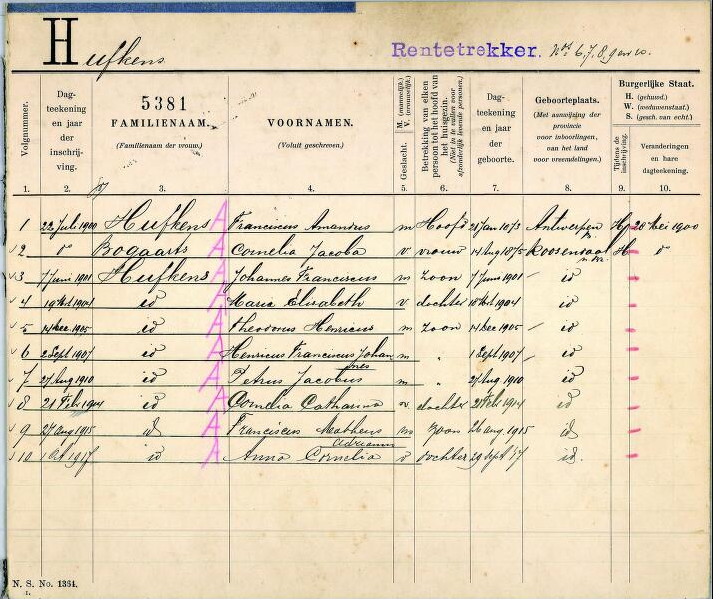 Hufkens
Rentetrekker. Nos. 6, 7, 8, 9 en 10.
Volgnummer.
Dag-
teekening
en jaar
der
inschrij-
ving.
5381
FAMILIENAAM.
(Familienaam der vrouw.)
VOORNAMEN.
(Voluit geschreven.)
M. (mannelijk.)
V. (vrouwelijk.)
Geslacht.
Betrekking van elken
persoon tot het hoofd van
het huisgezin.
(Niet in te vullen voor
afzonderlijk levende personen.)
Dag-
teekening
en jaar
der
geboorte.
Geboorteplaats.
(Met aanwijzing der
provincie
voor inboorlingen,
van het land
voor vreemdelingen.)
Burgerlijke Staat.
H. (gehuwd.)
W. (weduwenstaat.)
S. (gesch. van echt.)
Tijdens de
inschrijving.
Veranderingen
en hare
dagteekening.
1. 2. 3. 4. 5. 6. 7. 8. 9. 10.
1 22 Juli 1900 Hufkens A Franciscus Amandus m Hoofd 21 Jan 1873 Antwerpen H 20 Mei 1900
2 Bogaarts A Cornelia Jacoba v vrouw 14 Aug 1875 Roosendaal H
3 7 Juni 1901 Hufkens A Johannes Franciscus m zoon 7 Juni 1901 id
4 1904 id A Maria Elisabeth v dochter 1904 id
5 14 Dec 1905 id A Theodorus Henricus m zoon 14 Dec 1905 id
6 2 Sept 1907 id A Henricus Franciscus Johan m " 1 Sept 1907 id
nes
7 27 Aug 1910 id A Petrus Jacobus m " 27 Aug 1910 id
8 21 Feb 1914 id A Cornelia Catharina v dochter 21 Feb 1914 id
9 27 aug 1915 id A Franciscus Matheus m zoon 26 aug 1915 id
Adrianus
10 1 Oct 1917 id A Anna Cornelia v dochter 29 Sept 17 id.
N. S. No. 1364.
1.